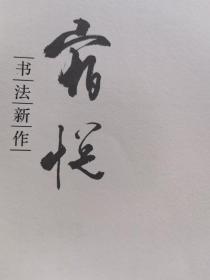 宿悦
书法新作